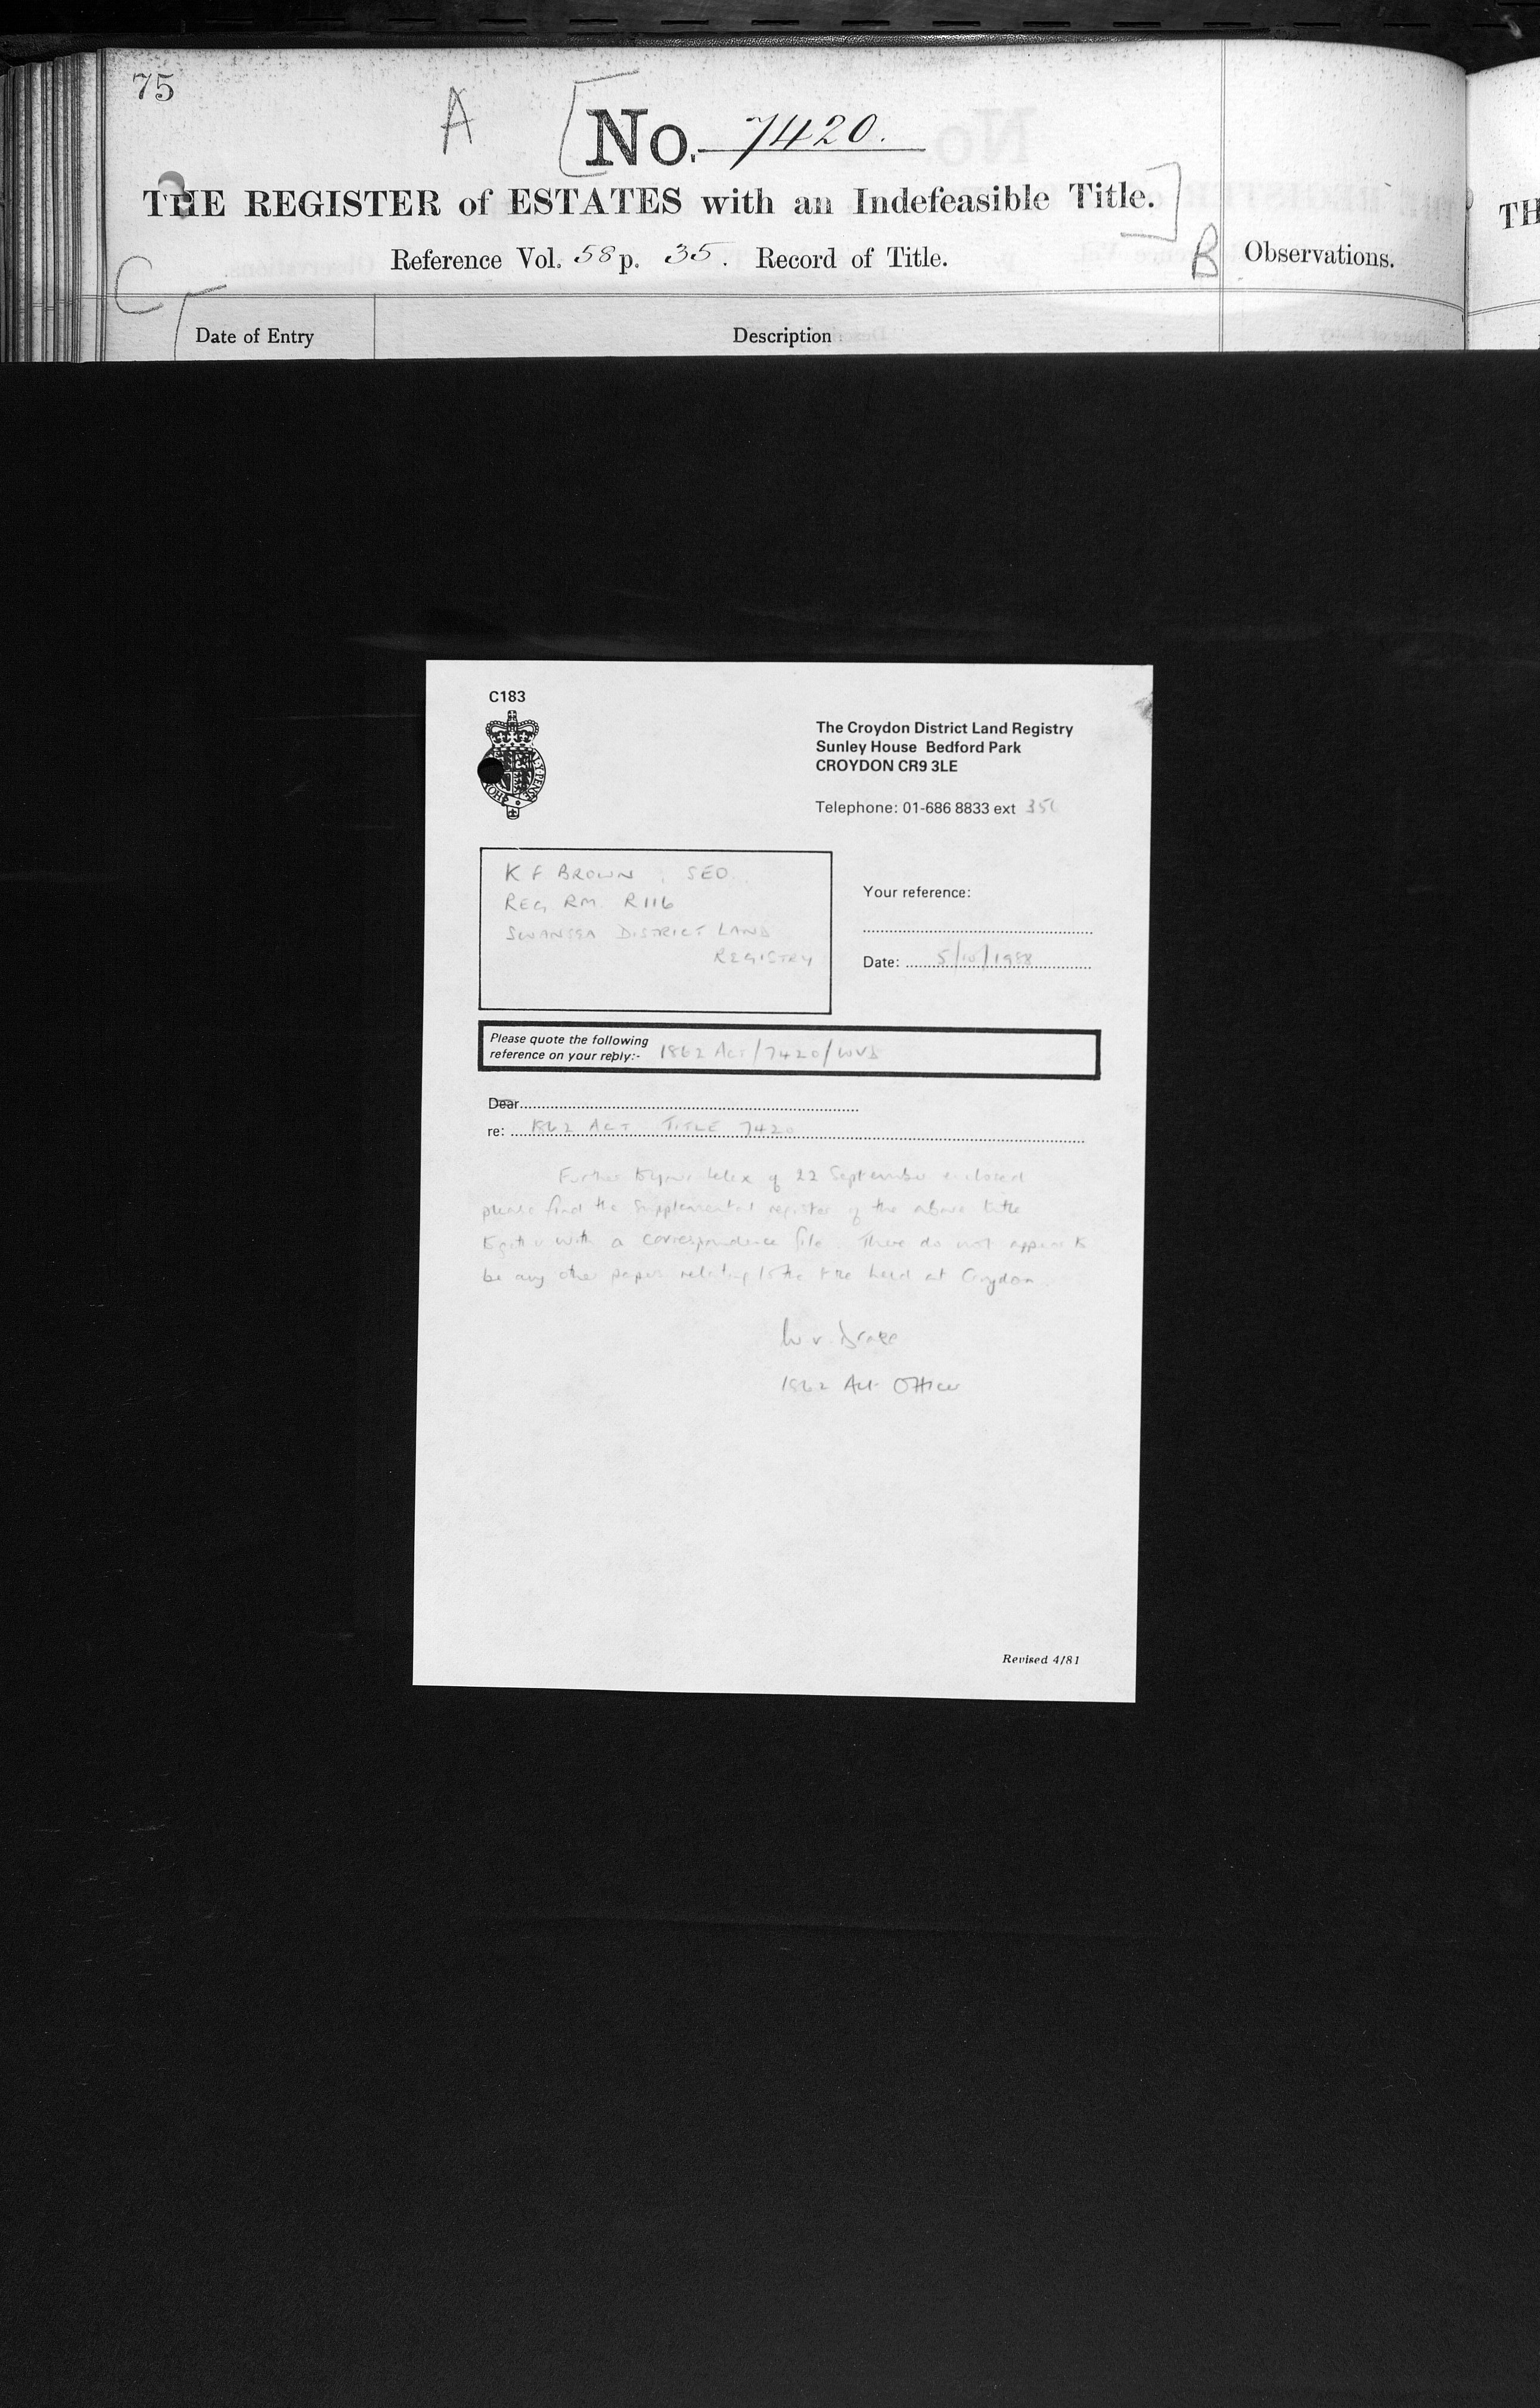 75
A
No. 7420.
THE REGISTER of ESTATES with an Indefeasible Title.
Reference Vol. 58 p. 35. Record of Title.
B
Observations.
C
Date of Entry
Description
TH
C183
The Croydon District Land Registry
Sunley House Bedford Park
CROYDON CR9 3LE
Telephone: 01-686 8833 ext
K F BROWN SEO
REG RM R116
SWANSEA DISTRICT LAND
REGISTRY
Your reference:
Date: 5/10/1988
Please quote the following
reference on your reply:- 1862 Act/7420/WVD
Dear
re: 1862 ACT TITLE 7420
Further to your telex of 22 September enclosed
please find the supplemental register of the above title
together with a correspondence file. There do not appear to
be any other papers relating to the title held at Croydon.
W V Drage
1862 Act Officer
Revised 4/81